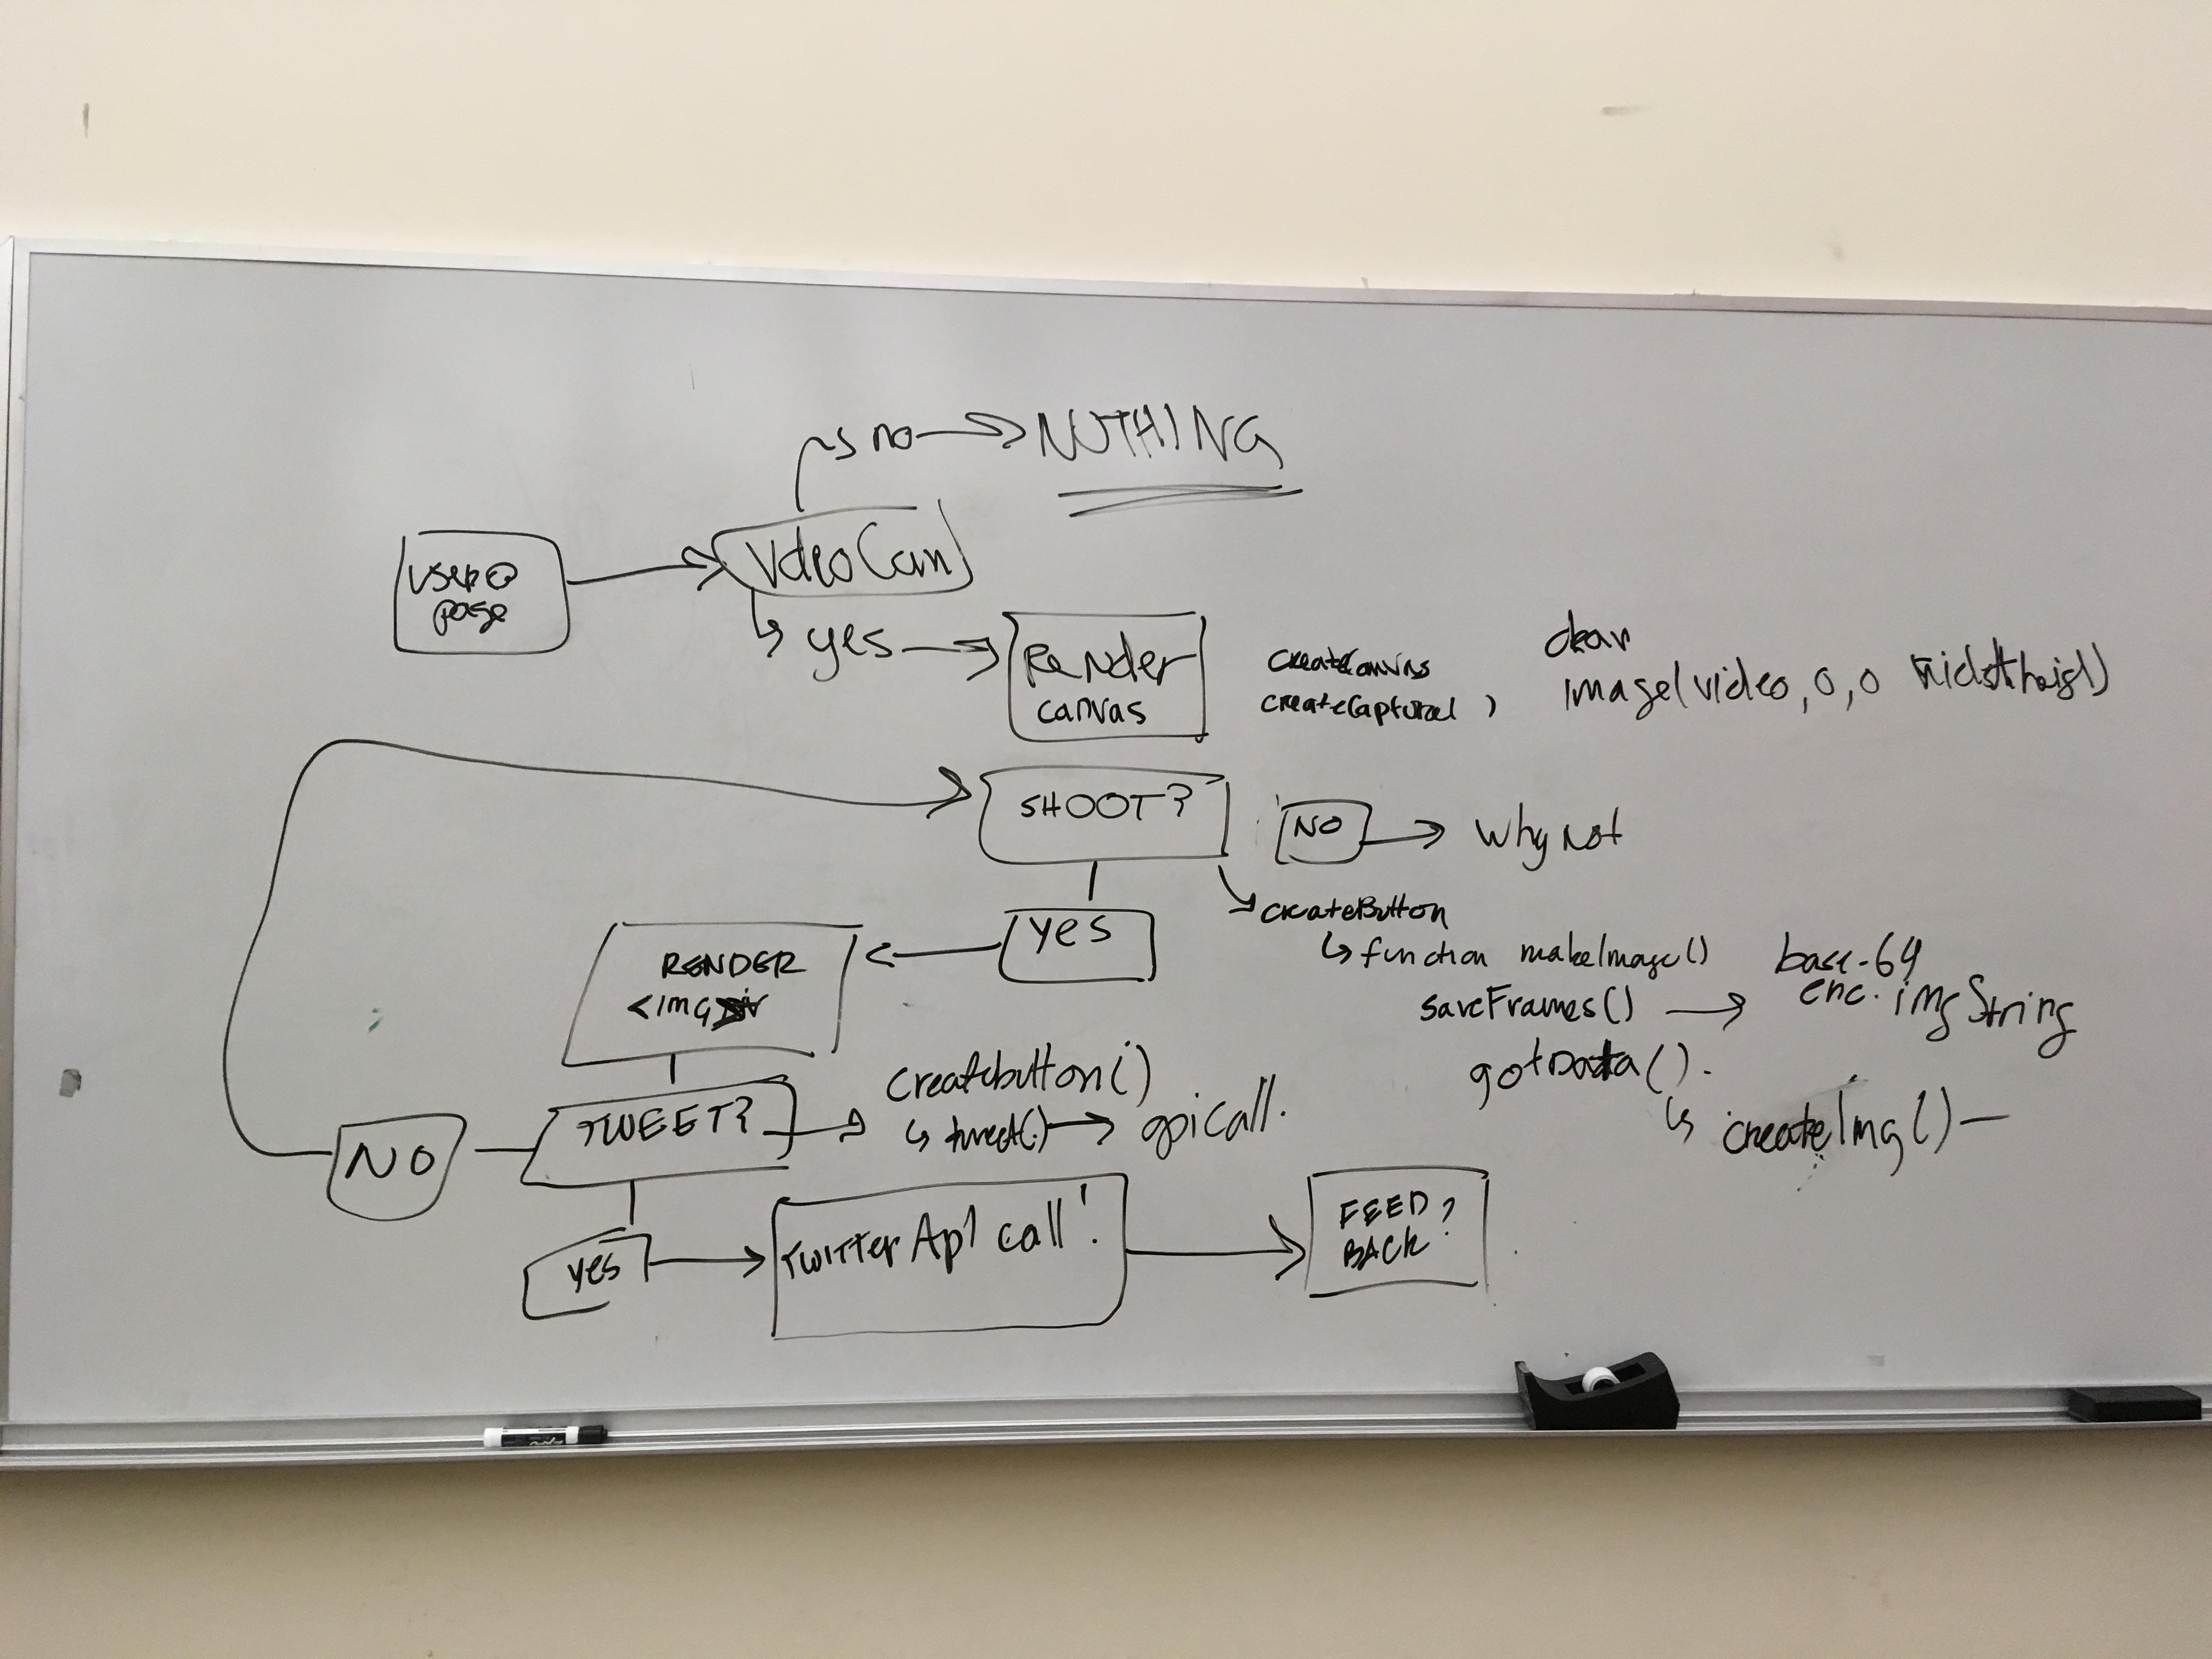 no → NOTHING
USER @
page
VdeoCam
yes
Render
canvas
createCanvas
createCapture( )
image(video, 0, 0
SHOOT?
NO → Why Not
yes
createButton
↳ function makeImage()
saveFrames() → base-64
enc. imgString
gotData().
↳ createImg() —
RENDER
<img
TWEET?
createbutton()
↳ tweet() → apicall.
NO
yes
TWITTER Api call!
FEED
BACK?